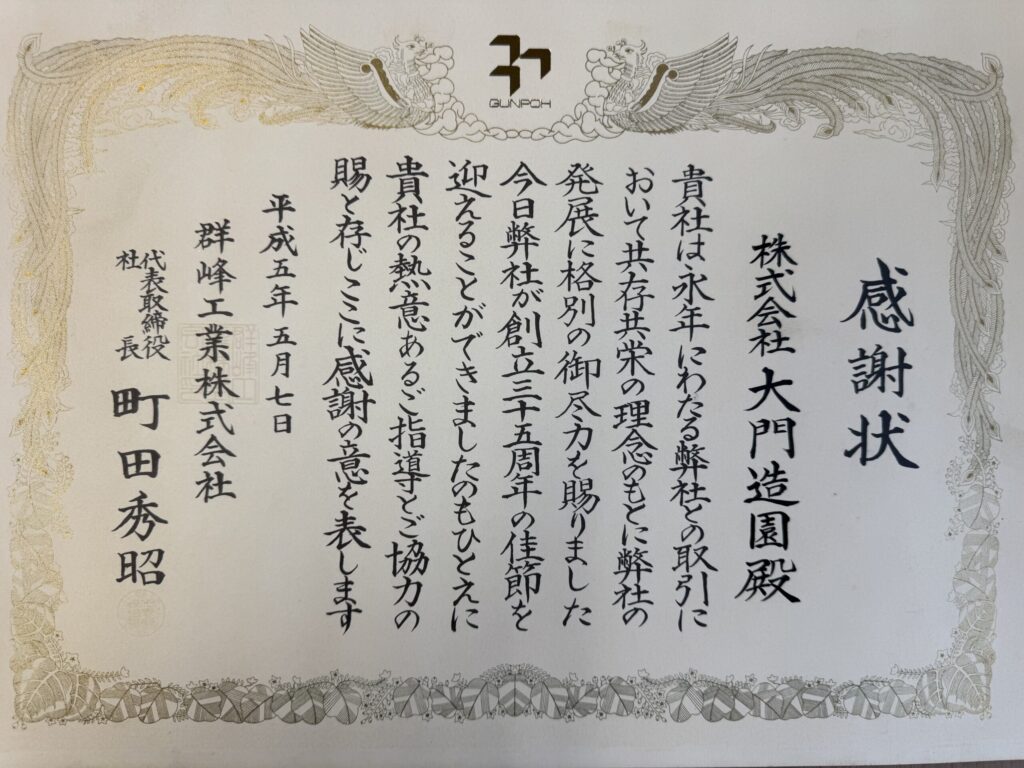 GUNPOH
感謝状
株式会社 大門造園殿
貴社は永年にわたる弊社との取引に
おいて共存共栄の理念のもとに弊社の
発展に格別の御尽力を賜りました
今日弊社が創立三十五周年の佳節を
迎えることができましたのもひとえに
貴社の熱意あるご指導とご協力の
賜と存じここに感謝の意を表します
平成五年五月七日
群峰工業株式会社
代表取締役
社長
町田秀昭